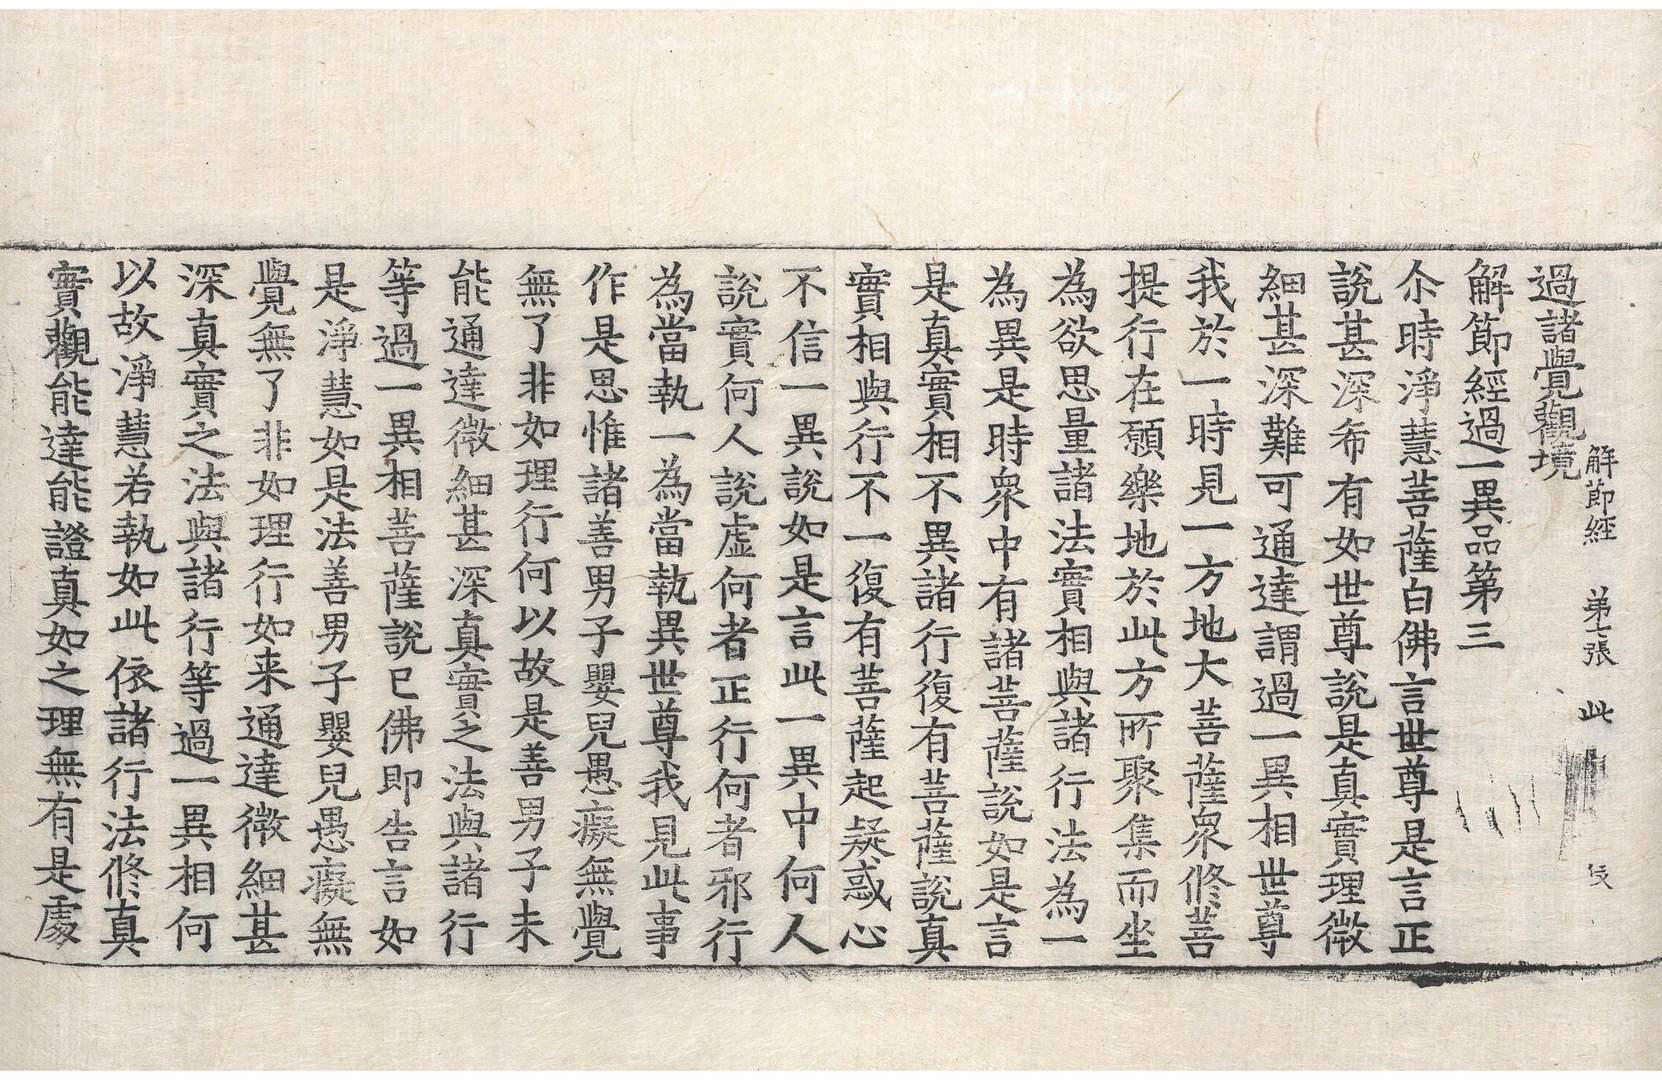 解節經　第七張　此
過諸覺觀境
解節經過一異品第三
尒時淨慧菩薩白佛言世尊是言正
說甚深希有如世尊說是真實理微
細甚深難可通達謂過一異相世尊
我於一時見一方地大菩薩衆修菩
提行在願樂地於此方所聚集而坐
為欲思量諸法實相與諸行法為一
為異是時衆中有諸菩薩說如是言
是真實相不異諸行復有菩薩說真
實相與行不一復有菩薩起疑惑心
不信一異說如是言此一異中何人
說實何人說虛何者正行何者邪行
為當執一為當執異世尊我見此事
作是思惟諸善男子嬰兒愚癡無覺
無了非如理行何以故是善男子未
能通達微細甚深真實之法與諸行
等過一異相菩薩說已佛即告言如
是淨慧如是法善男子嬰兒愚癡無
覺無了非如理行如来通達微細甚
深真實之法與諸行等過一異相何
以故淨慧若執如此依諸行法修真
實觀能達能證真如之理無有是處